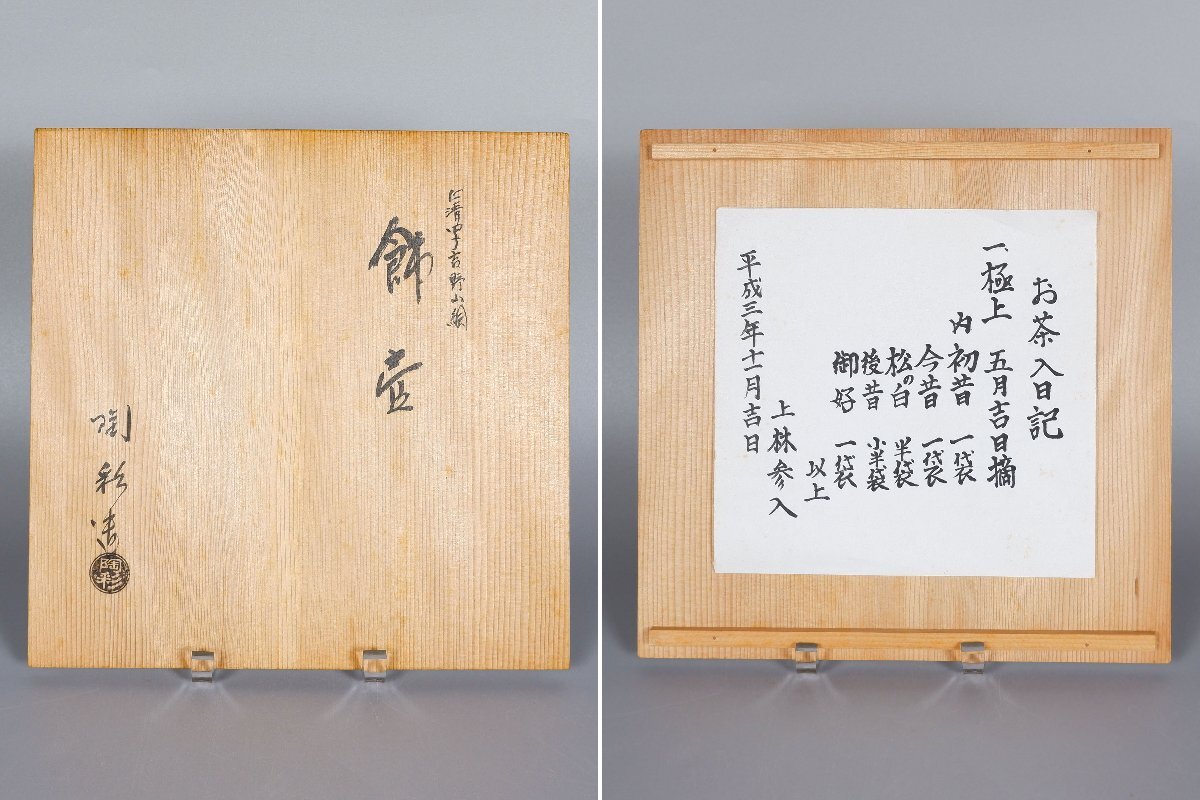 仁清写吉野山図
飾壺
陶彩造
陶彩
お茶入日記
一、極上 五月吉日摘
内 初昔 一袋
今昔 一袋
松の白 半袋
後昔 小半袋
御好 一袋
以上
上林参入
平成三年十一月吉日